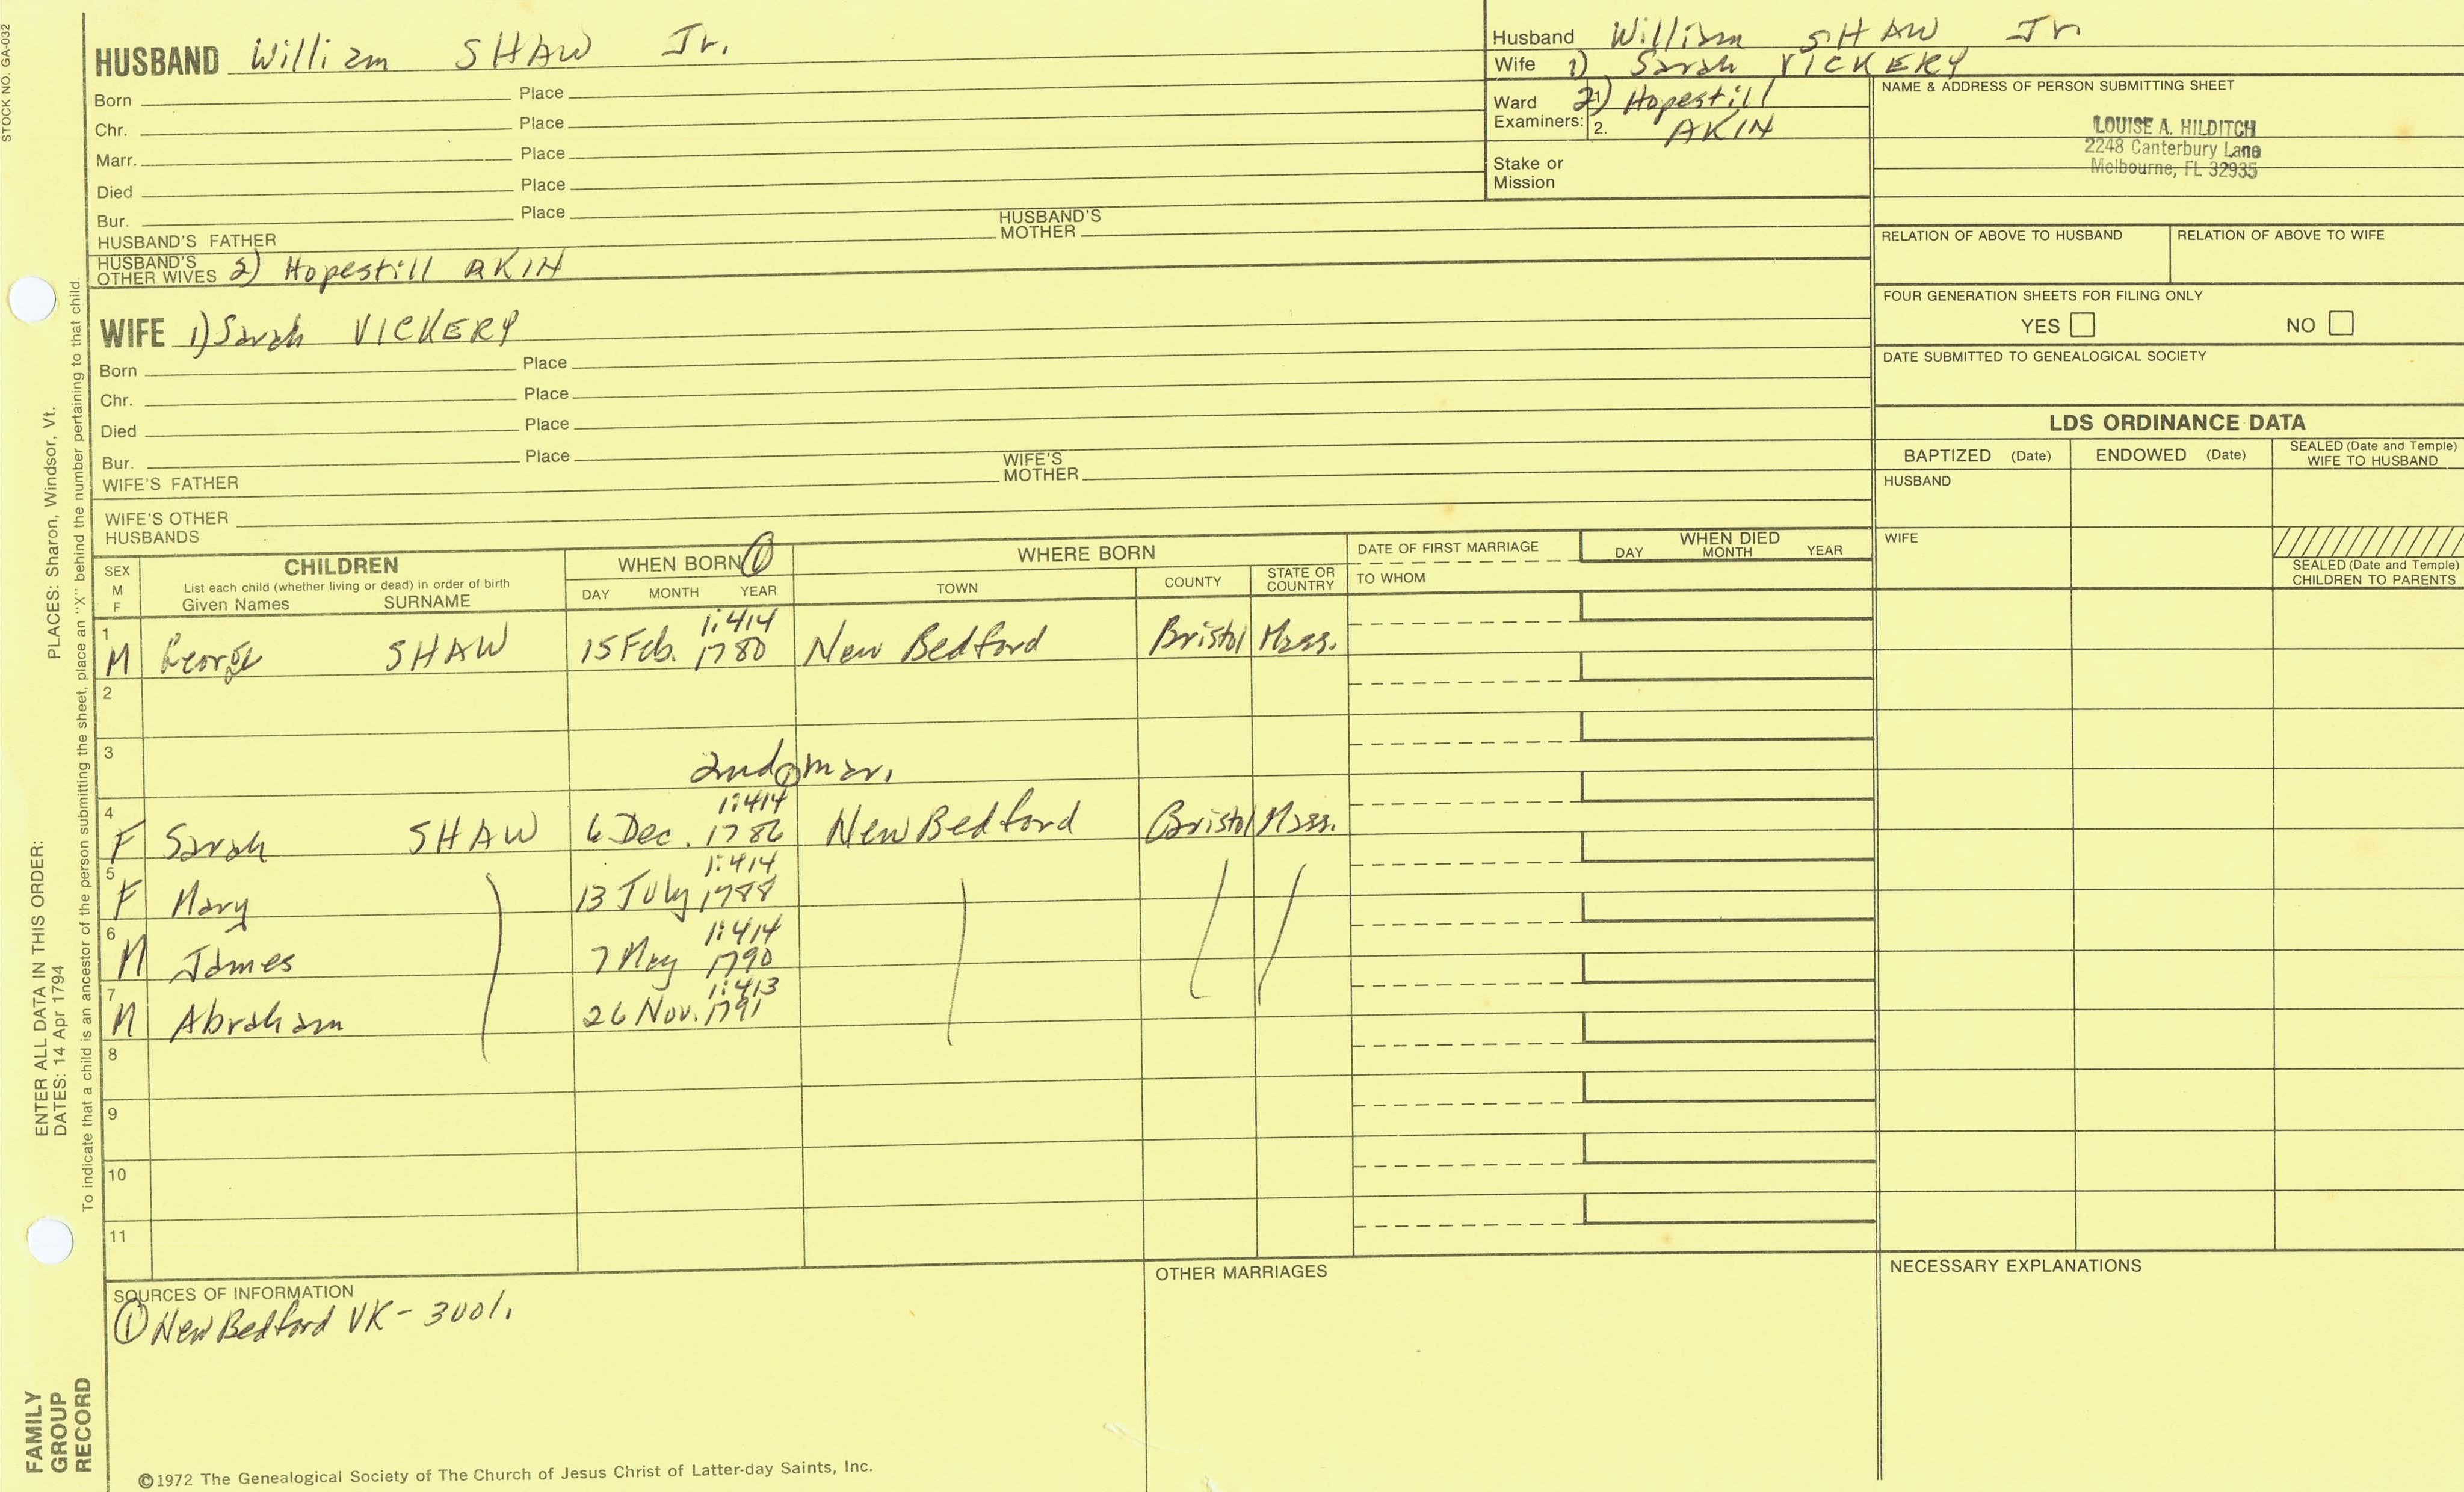 STOCK NO. GA-032
HUSBAND William SHAW Jr.
Born Place
Chr. Place
Marr. Place
Died Place
Bur. Place
HUSBAND'S FATHER HUSBAND'S MOTHER
HUSBAND'S OTHER WIVES 2) Hopestill AKIN
WIFE 1) Sarah VICKERY
Born Place
Chr. Place
Died Place
Bur. Place
WIFE'S FATHER WIFE'S MOTHER
WIFE'S OTHER HUSBANDS
Husband William SHAW Jr.
Wife 1) Sarah VICKERY
Ward 2) Hopestill
Examiners: 2. AKIN
Stake or
Mission
NAME & ADDRESS OF PERSON SUBMITTING SHEET
LOUISE A. HILDITCH
2248 Canterbury Lane
Melbourne, FL 32935
RELATION OF ABOVE TO HUSBAND RELATION OF ABOVE TO WIFE
FOUR GENERATION SHEETS FOR FILING ONLY
YES NO
DATE SUBMITTED TO GENEALOGICAL SOCIETY
LDS ORDINANCE DATA
BAPTIZED (Date) ENDOWED (Date) SEALED (Date and Temple) WIFE TO HUSBAND
HUSBAND
WIFE
SEALED (Date and Temple) CHILDREN TO PARENTS
SEX M F CHILDREN WHEN BORN ① WHERE BORN DATE OF FIRST MARRIAGE WHEN DIED
List each child (whether living or dead) in order of birth
Given Names SURNAME DAY MONTH YEAR TOWN COUNTY STATE OR COUNTRY TO WHOM DAY MONTH YEAR
1:414
1 M George SHAW 15 Feb. 1780 New Bedford Bristol Mass.
2
3 2nd ① mar.
1:414
4 F Sarah SHAW 6 Dec. 1786 New Bedford Bristol Mass.
1:414
5 F Mary 13 July 1788
1:414
6 M James 7 May 1790
1:413
7 M Abraham 26 Nov. 1791
8
9
10
11
SOURCES OF INFORMATION
① New Bedford VR - 3 vol.
OTHER MARRIAGES
NECESSARY EXPLANATIONS
©1972 The Genealogical Society of The Church of Jesus Christ of Latter-day Saints, Inc.
FAMILY
GROUP
RECORD
ENTER ALL DATA IN THIS ORDER:
DATES: 14 Apr 1794
PLACES: Sharon, Windsor, Vt.
To indicate that a child is an ancestor of the person submitting the sheet, place an "X" behind the number pertaining to that child.